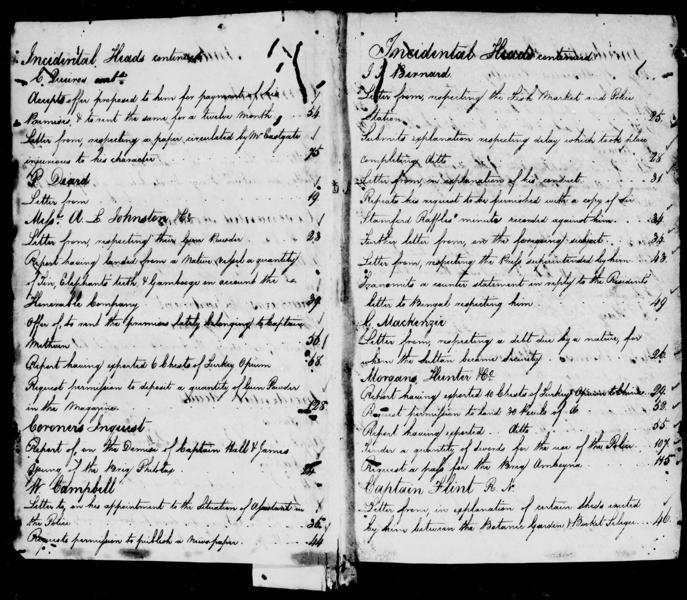 Incidental Heads continued
C. Queiros contd
Accepts offer proposed to him for payment of his
Premises, & to rent the same for a twelve month . . 54
Letter from, respecting a paper circulated by Mr Eastgate
injurious to his character 75
P. Daard
Letter from 19
Messrs. A L Johnston & Co
Letter from, respecting their Gun Powder 23
Report having landed from a Native Vessel a quantity
of Tin, Elephants teeth, & Gamboage on account the
Honorable Company 39
Offer of, to rent the premises lately belonging to Captain
Methven 56
Report having exported 6 Chests of Turkey Opium 68
Request permission to deposit a quantity of Gun Powder
in the Magazine 128
Coroners Inquest
Report of, on the Demise of Captain Hall & James
Young of the Brig Philotax
W. Campbell
Letter to, on his appointment to the Situation of Assistant in
the Police 36
Requests permission to publish a Newspaper 44
Incidental Heads continued
J. Bernard
Letter from, respecting the Fish Market and Police
Station 25
Submits explanation respecting delay which took place
completing ditto 28
Letter from, in explanation of his conduct 31
Repeats his request to be furnished with a copy of Sir
Stamford Raffles' minute recorded against him 34
Further letter from, on the foregoing subject 34
Letter from, respecting the superintended by him 43
Transmits a counter statement in reply to the Residents
Letter to Bengal respecting him 49
C. Mackenzie
Letter from, respecting a debt due by a native, for
whom the Sultan became Security 26
Morgans, Hunter & Co
Report having exported 10 Chests of Turkey Opium to China 29
Request permission to land 30 Peculs of do 52
Report having exported ditto 55
Tender a quantity of Swords for the use of the Police 107
Request a pass for the Brig Amboyna 145
Captain Flint R. N.
Letter from, in explanation of certain Sheds erected
by him between the Botanic Garden & Market Selegie 46